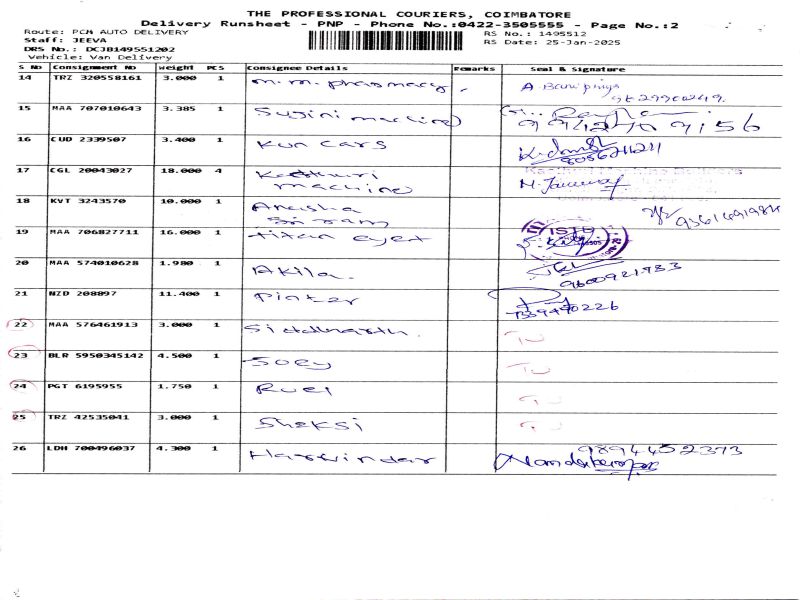 THE PROFESSIONAL COURIERS, COIMBATORE
Delivery Runsheet - PNP - Phone No.:0422-3505555 - Page No.:2
Route: PCM AUTO DELIVERY RS No.: 1495512
Staff: JEEVA RS Date: 25-Jan-2025
DRS No.: DCJB149551202
Vehicle: Van Delivery
S No Consignment No Weight PCS Consignee Details Remarks Seal & Signature
14 TRZ 320558161 3.000 1 m.m.pharmacy
15 MAA 707010643 3.385 1 Sugini machine
16 CUD 2339507 3.400 1 Kun cars
17 CGL 20043027 18.000 4 machine
18 KVT 3243570 10.000 1 Anusha
Sriram
19 MAA 706827711 16.000 1 titan eyet
20 MAA 574010628 1.980 1 Akila. 9600921933
21 NZD 208897 11.400 1
22 MAA 576461913 3.000 1 Siddharth.
23 BLR 5950345142 4.500 1 Joey
24 PGT 6195955 1.750 1 Ruel
25 TRZ 42535041 3.000 1 Sheksi
26 LDH 700496037 4.300 1 Harwindar 9894452373